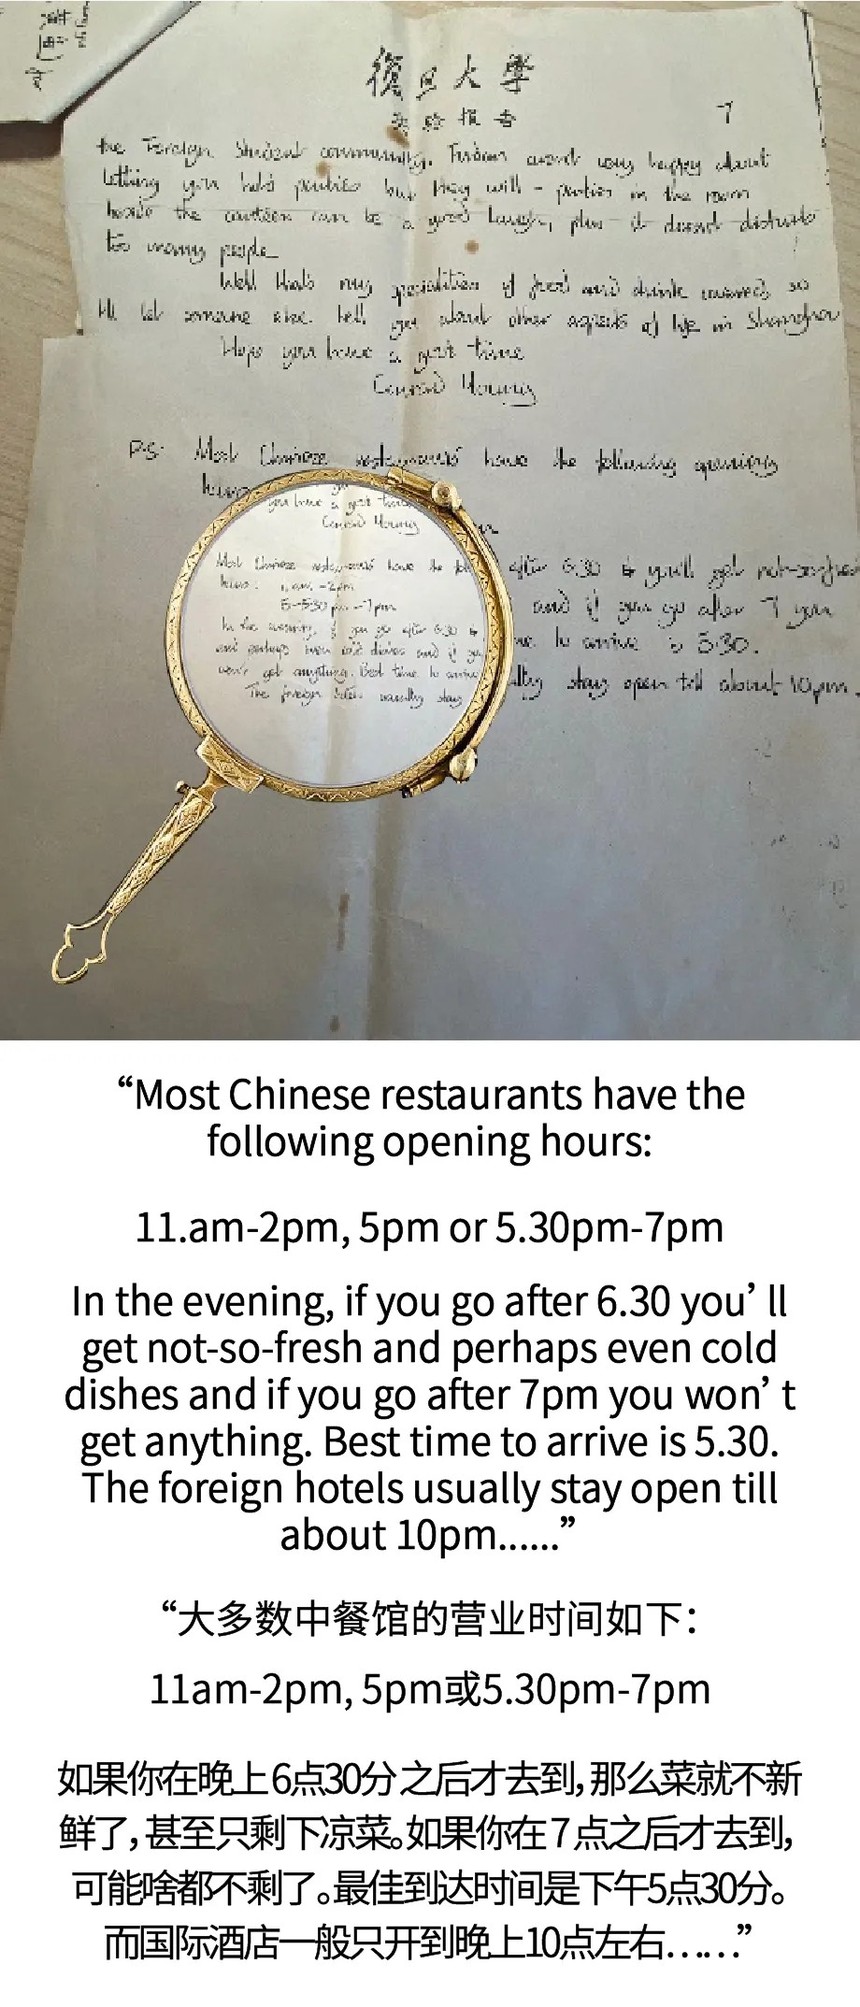 復旦大學
实验报告
7
the Foreign Student community. Fudan arent very happy about
letting you hold parties but they will - parties in the room
beside the canteen can be a good laugh, plus it doesnt disturb
too many people.
Well thats my specialities of food and drink covered, so
I'll let someone else tell you about other aspects of life in Shanghai
Hope you have a great time
Conrad
P.S. Most Chinese restaurants have the following opening
hours
you have a great time
Conrad
Most Chinese restaurants have the
hours: 11.am-2pm
5-5:30pm-7pm
In the evening, if you go after 6:30
and perhaps even cold dishes and if you
won't get anything. Best time to arrive
The foreign hotels usually stay
after 6:30 you'll get not-so-fresh
and if you go after 7 you
to arrive is 5:30.
stay open till about 10pm.
“Most Chinese restaurants have the
following opening hours:
11.am-2pm, 5pm or 5.30pm-7pm
In the evening, if you go after 6.30 you’ ll
get not-so-fresh and perhaps even cold
dishes and if you go after 7pm you won’ t
get anything. Best time to arrive is 5.30.
The foreign hotels usually stay open till
about 10pm......”
“大多数中餐馆的营业时间如下：
11am-2pm, 5pm或5.30pm-7pm
如果你在晚上6点30分之后才去到，那么菜就不新
鲜了，甚至只剩下凉菜。如果你在7点之后才去到，
可能啥都不剩了。最佳到达时间是下午5点30分。
而国际酒店一般只开到晚上10点左右……”